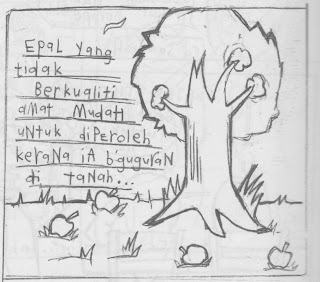 EPaL Yang
tidak
Berkualiti
aMat MudaH
uNtuk diPeroleh
keraNa iA b'guguraN
di taNah...